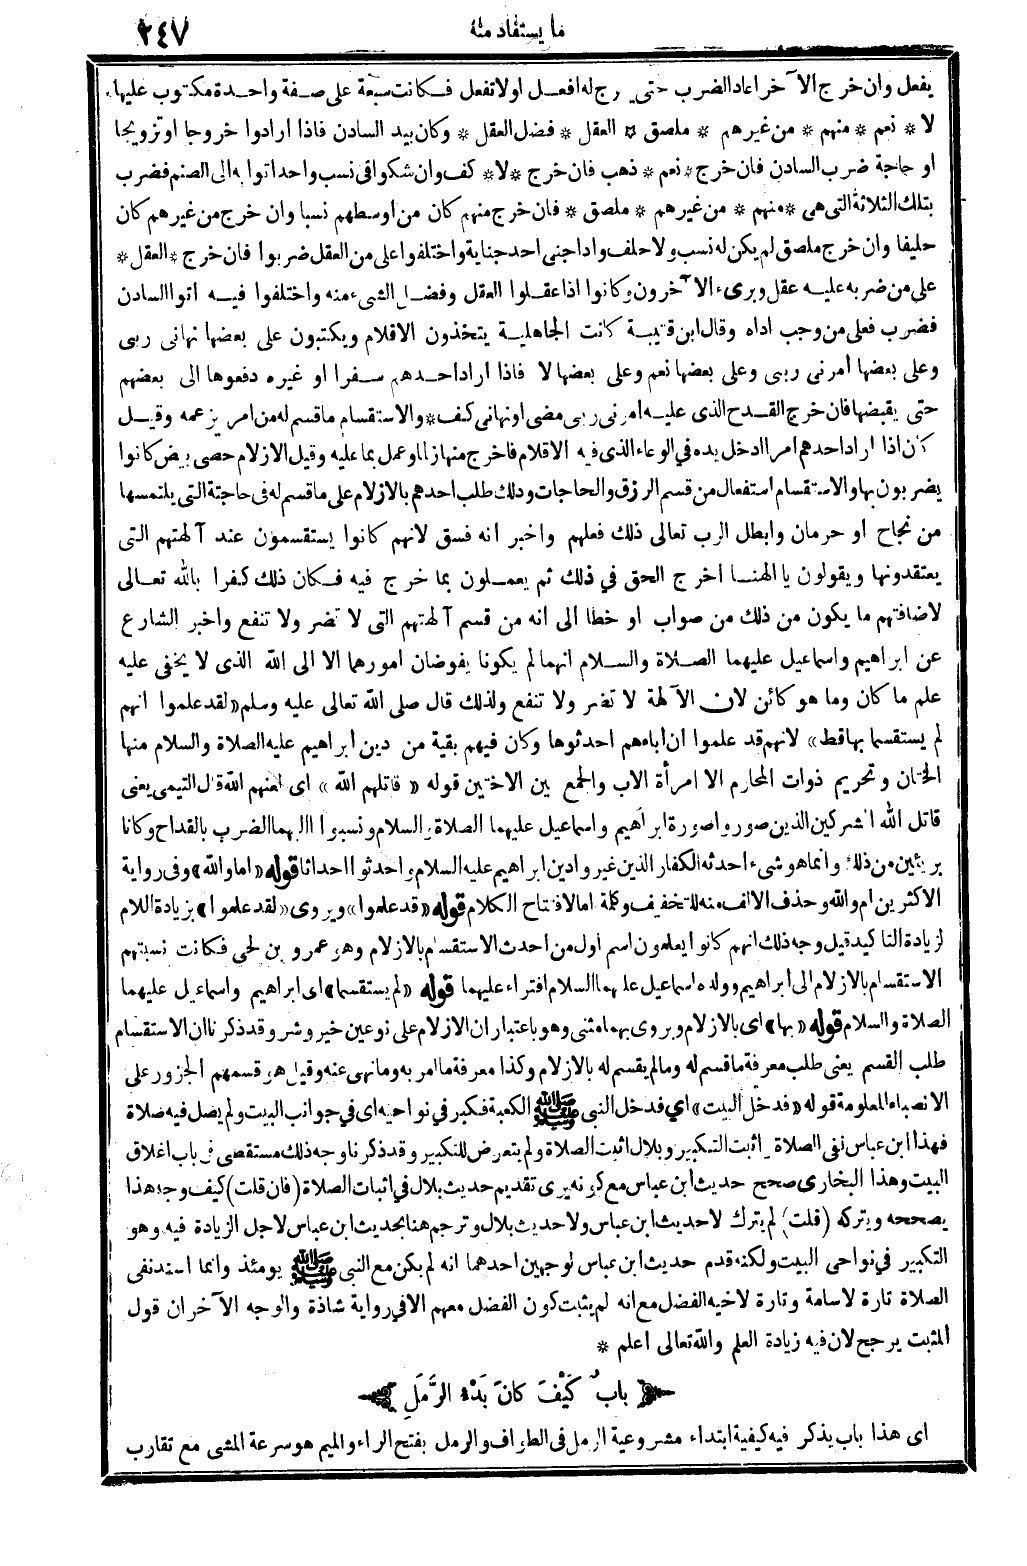 ما يستفاد منه
٢٤٧
يفعل وان خرج الآخر اعاد الضرب حتى يخرج له افعل او لا تفعل فكانت سبعة على صفة واحدة مكتوب عليها
لا * نعم * منهم * من غيرهم * ملصق * العقل * فضل العقل * وكان بيد السادن فاذا ارادوا خروجا او تزويجا
او حاجة ضرب السادن فان خرج * نعم * ذهب فان خرج * لا * كف وان شكوا فى نسب واحد اتوا به الى الصنم فضرب
بتلك الثلاثة التى هى * منهم * من غيرهم * ملصق * فان خرج منهم كان من اوسطهم نسبا وان خرج من غيرهم كان
حليفا وان خرج ملصق لم يكن له نسب ولا حلف واذا جنى احد جناية واختلفوا على من العقل ضربوا فان خرج * العقل *
على من ضربه عليه عقل وبرىء الآخرون وكانوا اذا عقلوا العقل وفضل الشىء منه واختلفوا فيه اتوا السادن
فضرب فعلى من وجب اداه وقال ابن قتيبة كانت الجاهلية يتخذون الاقلام ويكتبون على بعضها نهانى ربى
وعلى بعضها أمرنى ربى وعلى بعضها نعم وعلى بعضها لا فاذا اراد احدهم سفرا او غيره دفعوها الى بعضهم
حتى يقبضها فان خرج القدح الذى عليه امرنى ربى مضى او نهانى كف * والاستقسام ما قسم له من امر يزعمه وقيل
كان اذا اراد احدهم امرا ادخل يده فى الوعاء الذى فيه الاقلام فاخرج منها زلما وعمل بما عليه وقيل الازلام حصى بيض كانوا
يضربون بها والاستقسام استفعال من قسم الرزق والحاجات وذلك طلب احدهم بالازلام على ما قسم له فى حاجته التى يلتمسها
من نجاح او حرمان وابطل الرب تعالى ذلك فعلهم واخبر انه فسق لانهم كانوا يستقسمون عند آلهتهم التى
يعتقدونها ويقولون يا الهنا اخرج الحق في ذلك ثم يعملون بما خرج فيه فكان ذلك كفرا بالله تعالى
لاضافتهم ما يكون من ذلك من صواب او خطا الى انه من قسم آلهتهم التى لا تضر ولا تنفع واخبر الشارع
عن ابراهيم واسماعيل عليهما الصلاة والسلام انهما لم يكونا يفوضان امورهما الا الى الله الذى لا يخفى عليه
علم ما كان وما هو كائن لان الآلهة لا تضر ولا تنفع ولذلك قال صلى الله تعالى عليه وسلم «لقد علموا انهم
لم يستقسما بها قط» لانهم قد علموا ان أباءهم احدثوها وكان فيهم بقية من دين ابراهيم عليه الصلاة والسلام منها
الختان وتحريم ذوات المحارم الا امرأة الاب والجمع بين الاختين قوله «قاتلهم الله» اى لعنهم الله قال التيمى يعنى
قاتل الله المشركين الذين صوروا صورة ابراهيم واسماعيل عليهما الصلاة والسلام ونسبوا اليهما الضرب بالقداح وكانا
بريئين من ذلك وانما هو شىء احدثه الكفار الذين غيروا دين ابراهيم عليه السلام واحدثوا احداثا قوله «اما والله» وفى رواية
الاكثرين ام والله وحذف الالف منه للتخفيف وكلمة اما لافتتاح الكلام قوله «قد علموا» ويروى «لقد علموا» بزيادة اللام
لزيادة التاكيد قيل وجه ذلك انهم كانوا يعلمون اسم اول من احدث الاستقسام بالازلام وهو عمرو بن لحى فكانت نسبتهم
الاستقسام بالازلام الى ابراهيم وولده اسماعيل عليهما السلام افتراء عليهما قوله «لم يستقسما» اى ابراهيم واسماعيل عليهما
الصلاة والسلام قوله «بها» اى بالازلام ويروى بهما مثنى وهو باعتبار ان الازلام على نوعين خير وشر وقد ذكرنا ان الاستقسام
طلب القسم يعنى طلب معرفة ما قسم له وما لم يقسم له بالازلام وكذا معرفة ما امر به وما نهى عنه وقيل هو قسمهم الجزور على
الانصباء المعلومة قوله «فدخل البيت» اي فدخل النبي ﷺ الكعبة فكبر في نواحيه اى في جوانب البيت ولم يصل فيه صلاة
فهذا ابن عباس نفى الصلاة واثبت التكبير وبلال اثبت الصلاة ولم يتعرض للتكبير وقد ذكرنا وجه ذلك مستقصى فى باب اغلاق
البيت وهذا البخارى صحح حديث ابن عباس مع كونه يرى تقديم حديث بلال في اثبات الصلاة (فان قلت) كيف وجه هذا
يصححه ويتركه (قلت) لم يترك لا حديث ابن عباس ولا حديث بلال وترجم هنا بحديث ابن عباس لاجل الزيادة فيه وهو
التكبير في نواحى البيت ولكنه قدم حديث ابن عباس لوجهين احدهما انه لم يكن مع النبى ﷺ يومئذ وانما اسند نفى
الصلاة تارة لاسامة وتارة لاخيه الفضل مع انه لم يثبت كون الفضل معهم الا في رواية شاذة والوجه الآخر ان قول
المثبت يرجح لان فيه زيادة العلم والله تعالى اعلم *
باب كَيْفَ كانَ بَدْءُ الرَّمَلِ
اى هذا باب يذكر فيه كيفية ابتداء مشروعية الرمل فى الطواف والرمل بفتح الراء والميم هو سرعة المشى مع تقارب